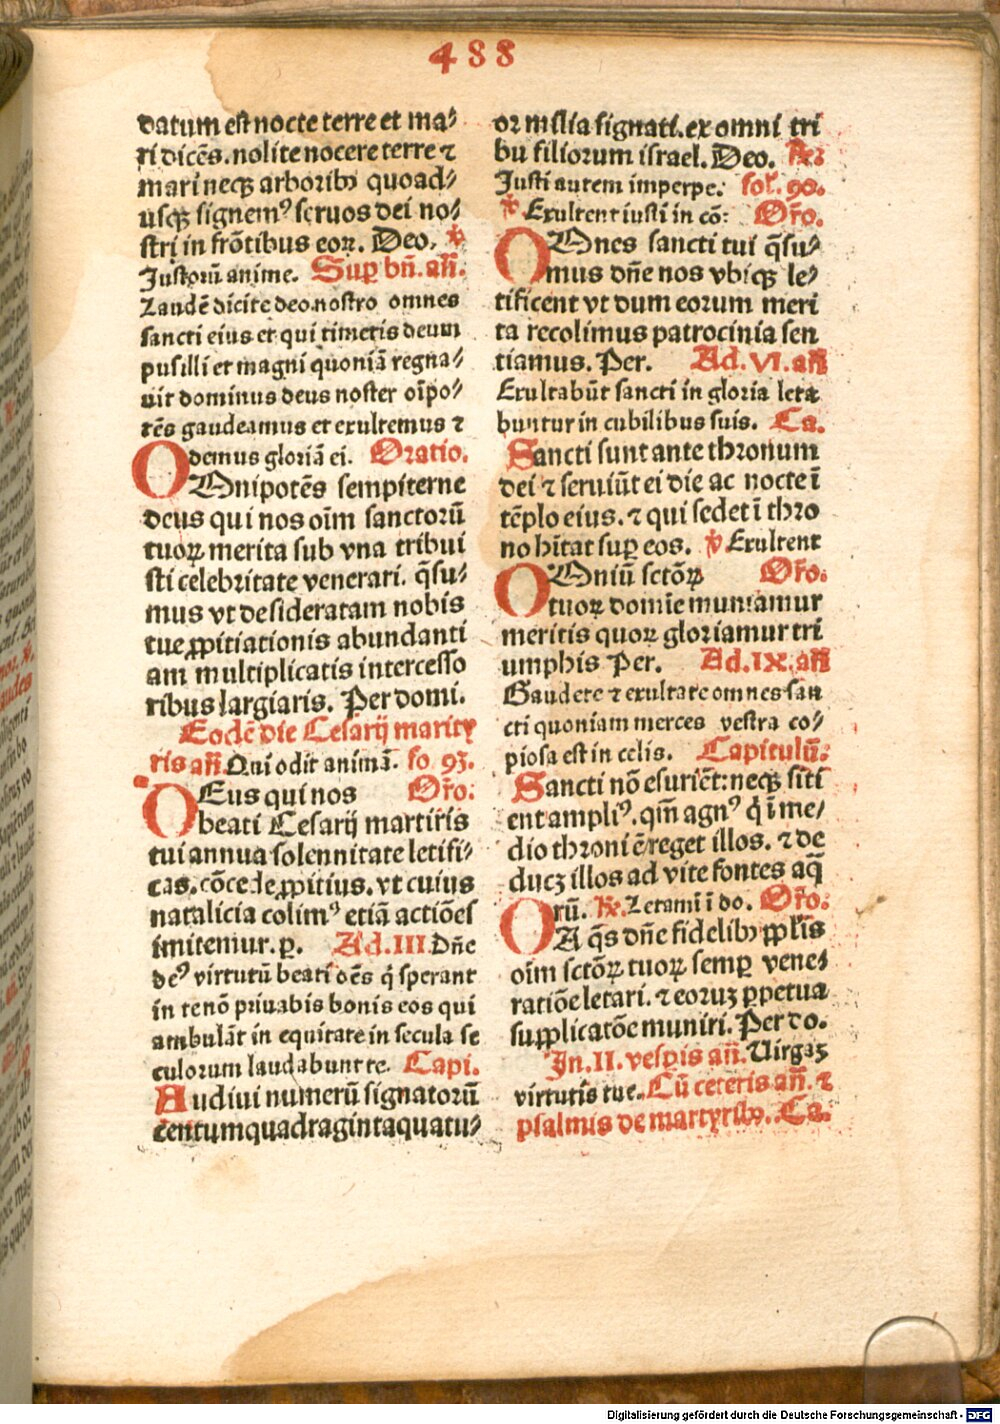 488
datum est nocte terre et ma⸗
ri dicēs. nolite nocere terre ⁊
mari neqꝫ arboribꝰ quoad⸗
usqꝫ signemꝰ seruos dei no⸗
stri in frōtibus eoꝝ. Deo. ℣
Justorū anime. Suꝑ bn̄. añ.
Laudē dicite deo nostro omnes
sancti eius et qui timetis deum
pusilli et magni quoniā regna⸗
uit dominus deus noster oīpo⸗
tēs gaudeamus et exultemus ⁊
demus gloriā ei. Oratio.
OMnipotēs sempiterne
deus qui nos oīm sanctorū
tuoꝝ merita sub vna tribui
sti celebritate venerari. q̄su⸗
mus vt desideratam nobis
tue ꝓpitiationis abundanti
am multiplicatis intercesso
ribus largiaris. Per domi.
Eodē die Cesarij martiy
ris añ. Qui odit animā. fo 93.
DEus qui nos Or̄o.
beati Cesarij martiris
tui annua solennitate letifi⸗
cas. cōcede ꝓpitius. vt cuius
natalicia colimꝰ etiā actiōes
imitemur. p. Ad. III. Dn̄e
deꝰ virtutū beati oēs q̇ sperant
in te nō priuabis bonis eos qui
ambulāt in equitate in secula se
culorum laudabunt te. Capi.
Audiui numerū signatorū
centumquadragintaquatu⸗
or milia signati. ex omni tri
bu filiorum israel. Deo. ℟:
Justi autem imperpe. fol. 90.
℣ Exultent iusti in cō: Or̄o.
OMnes sancti tui q̄su⸗
mus dn̄e nos vbiqꝫ le⸗
tificent vt dum eorum meri
ta recolimus patrocinia sen
tiamus. Per. Ad. VI. añ
Exultabūt sancti in gloria leta
buntur in cubilibus suis. Ca.
Sancti sunt ante thronum
dei ⁊ seruiūt ei die ac nocte ī
tēplo eius. ⁊ qui sedet ī thro
no hītat suꝑ eos. ℣ Exultent
OMniū sctōꝝ Or̄o.
tuoꝝ domīe muniamur
meritis quoꝝ gloriamur tri
umphis Per. Ad. IX. añ
Gaudete ⁊ exultate omnes san
cti quoniam merces vestra co⸗
piosa est in celis. Capitulū:
Sancti nō esuriēt: neqꝫ siti
ent ampliꝰ. qm̄ agnꝰ q̇ ī me⸗
dio throni ē reget illos. ⁊ de
ducꝫ illos ad vite fontes aq̄
rū. ℟. Letamī ī do. Or̄o.
DA q̄s dn̄e fidelibꝰ ꝓplīs
oīm sctōꝝ tuoꝝ semꝑ vene⸗
ratiōe letari. ⁊ eoruꝫ ꝑpetua
supplicatōe muniri. Per do.
In. II. vesꝑis añ. Uirgaꝫ
virtutis tue. Cū ceteris añ. ⁊
psalmis de martyribꝰ. Ca.
Digitalisierung gefördert durch die Deutsche Forschungsgemeinschaft - DFG